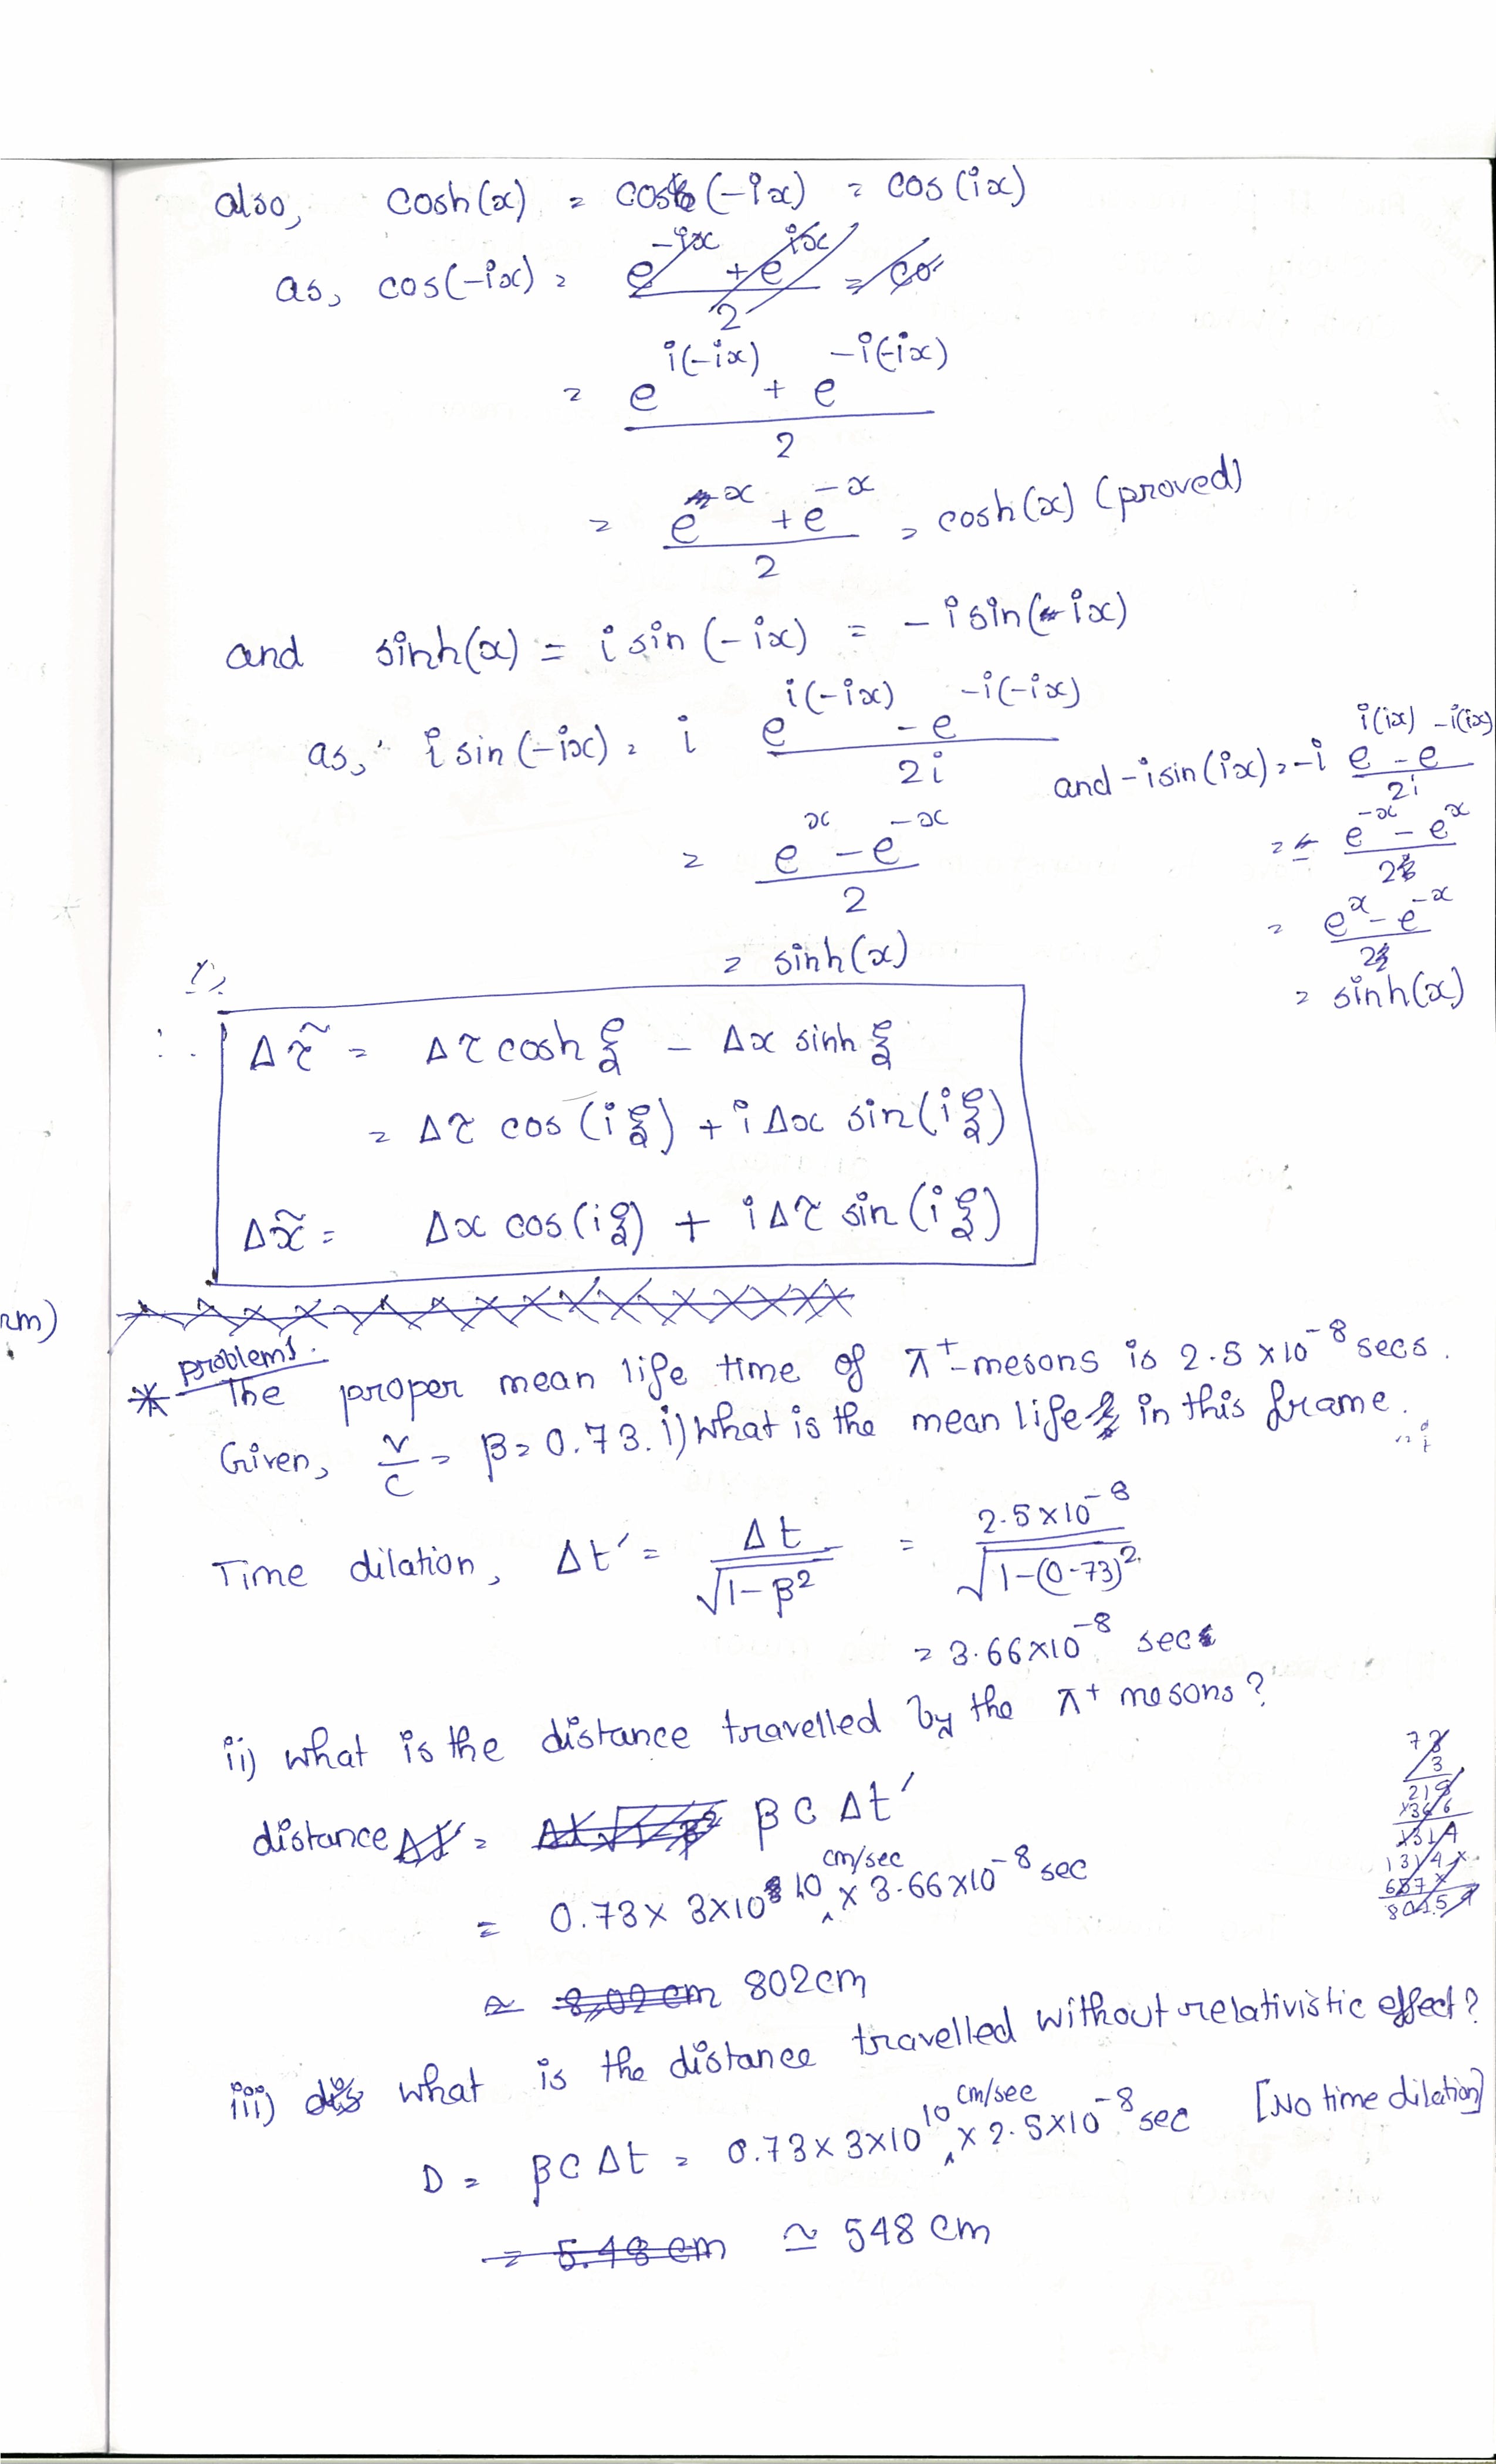 also, cosh(x) = cos(-ix) = cos(ix)
as, cos(-ix) = (e^{-ix} + e^{ix})/2 = co
= (e^{i(-ix)} + e^{-i(-ix)})/2
= (e^{x} + e^{-x})/2 = cosh(x) (proved)
and sinh(x) = i sin(-ix) = -i sin(ix)
as, i sin(-ix) = i (e^{i(-ix)} - e^{-i(-ix)})/2i
= (e^{x} - e^{-x})/2
= sinh(x)
and -i sin(ix) = -i (e^{i(ix)} - e^{-i(ix)})/2i
= - (e^{-x} - e^{x})/2
= (e^{x} - e^{-x})/2
= sinh(x)
∴ Δτ̃ = Δτ cosh ξ - Δx sinh ξ
= Δτ cos(iξ) + iΔx sin(iξ)
Δx̃ = Δx cos(iξ) + iΔτ sin(iξ)
rm)
problems.
* The proper mean life time of π⁺-mesons is 2.5 × 10⁻⁸ secs.
Given, v/c = β = 0.73. i) What is the mean life in this frame.
Time dilation, Δt′ = Δt/√(1-β²) = 2.5×10⁻⁸/√(1-(0.73)²)
= 3.66×10⁻⁸ sec
ii) what is the distance travelled by the π⁺ mesons?
distance = βcΔt′
= 0.73 × 3×10¹⁰ cm/sec × 3.66×10⁻⁸ sec
≃ 8.02 cm 802 cm
73
3
219
×366
1314
1314×
657×
80154
iii) dis what is the distance travelled without relativistic effect?
D = βcΔt = 0.73 × 3×10¹⁰ cm/sec × 2.5×10⁻⁸ sec [No time dilation]
= 5.48 cm ≃ 548 cm